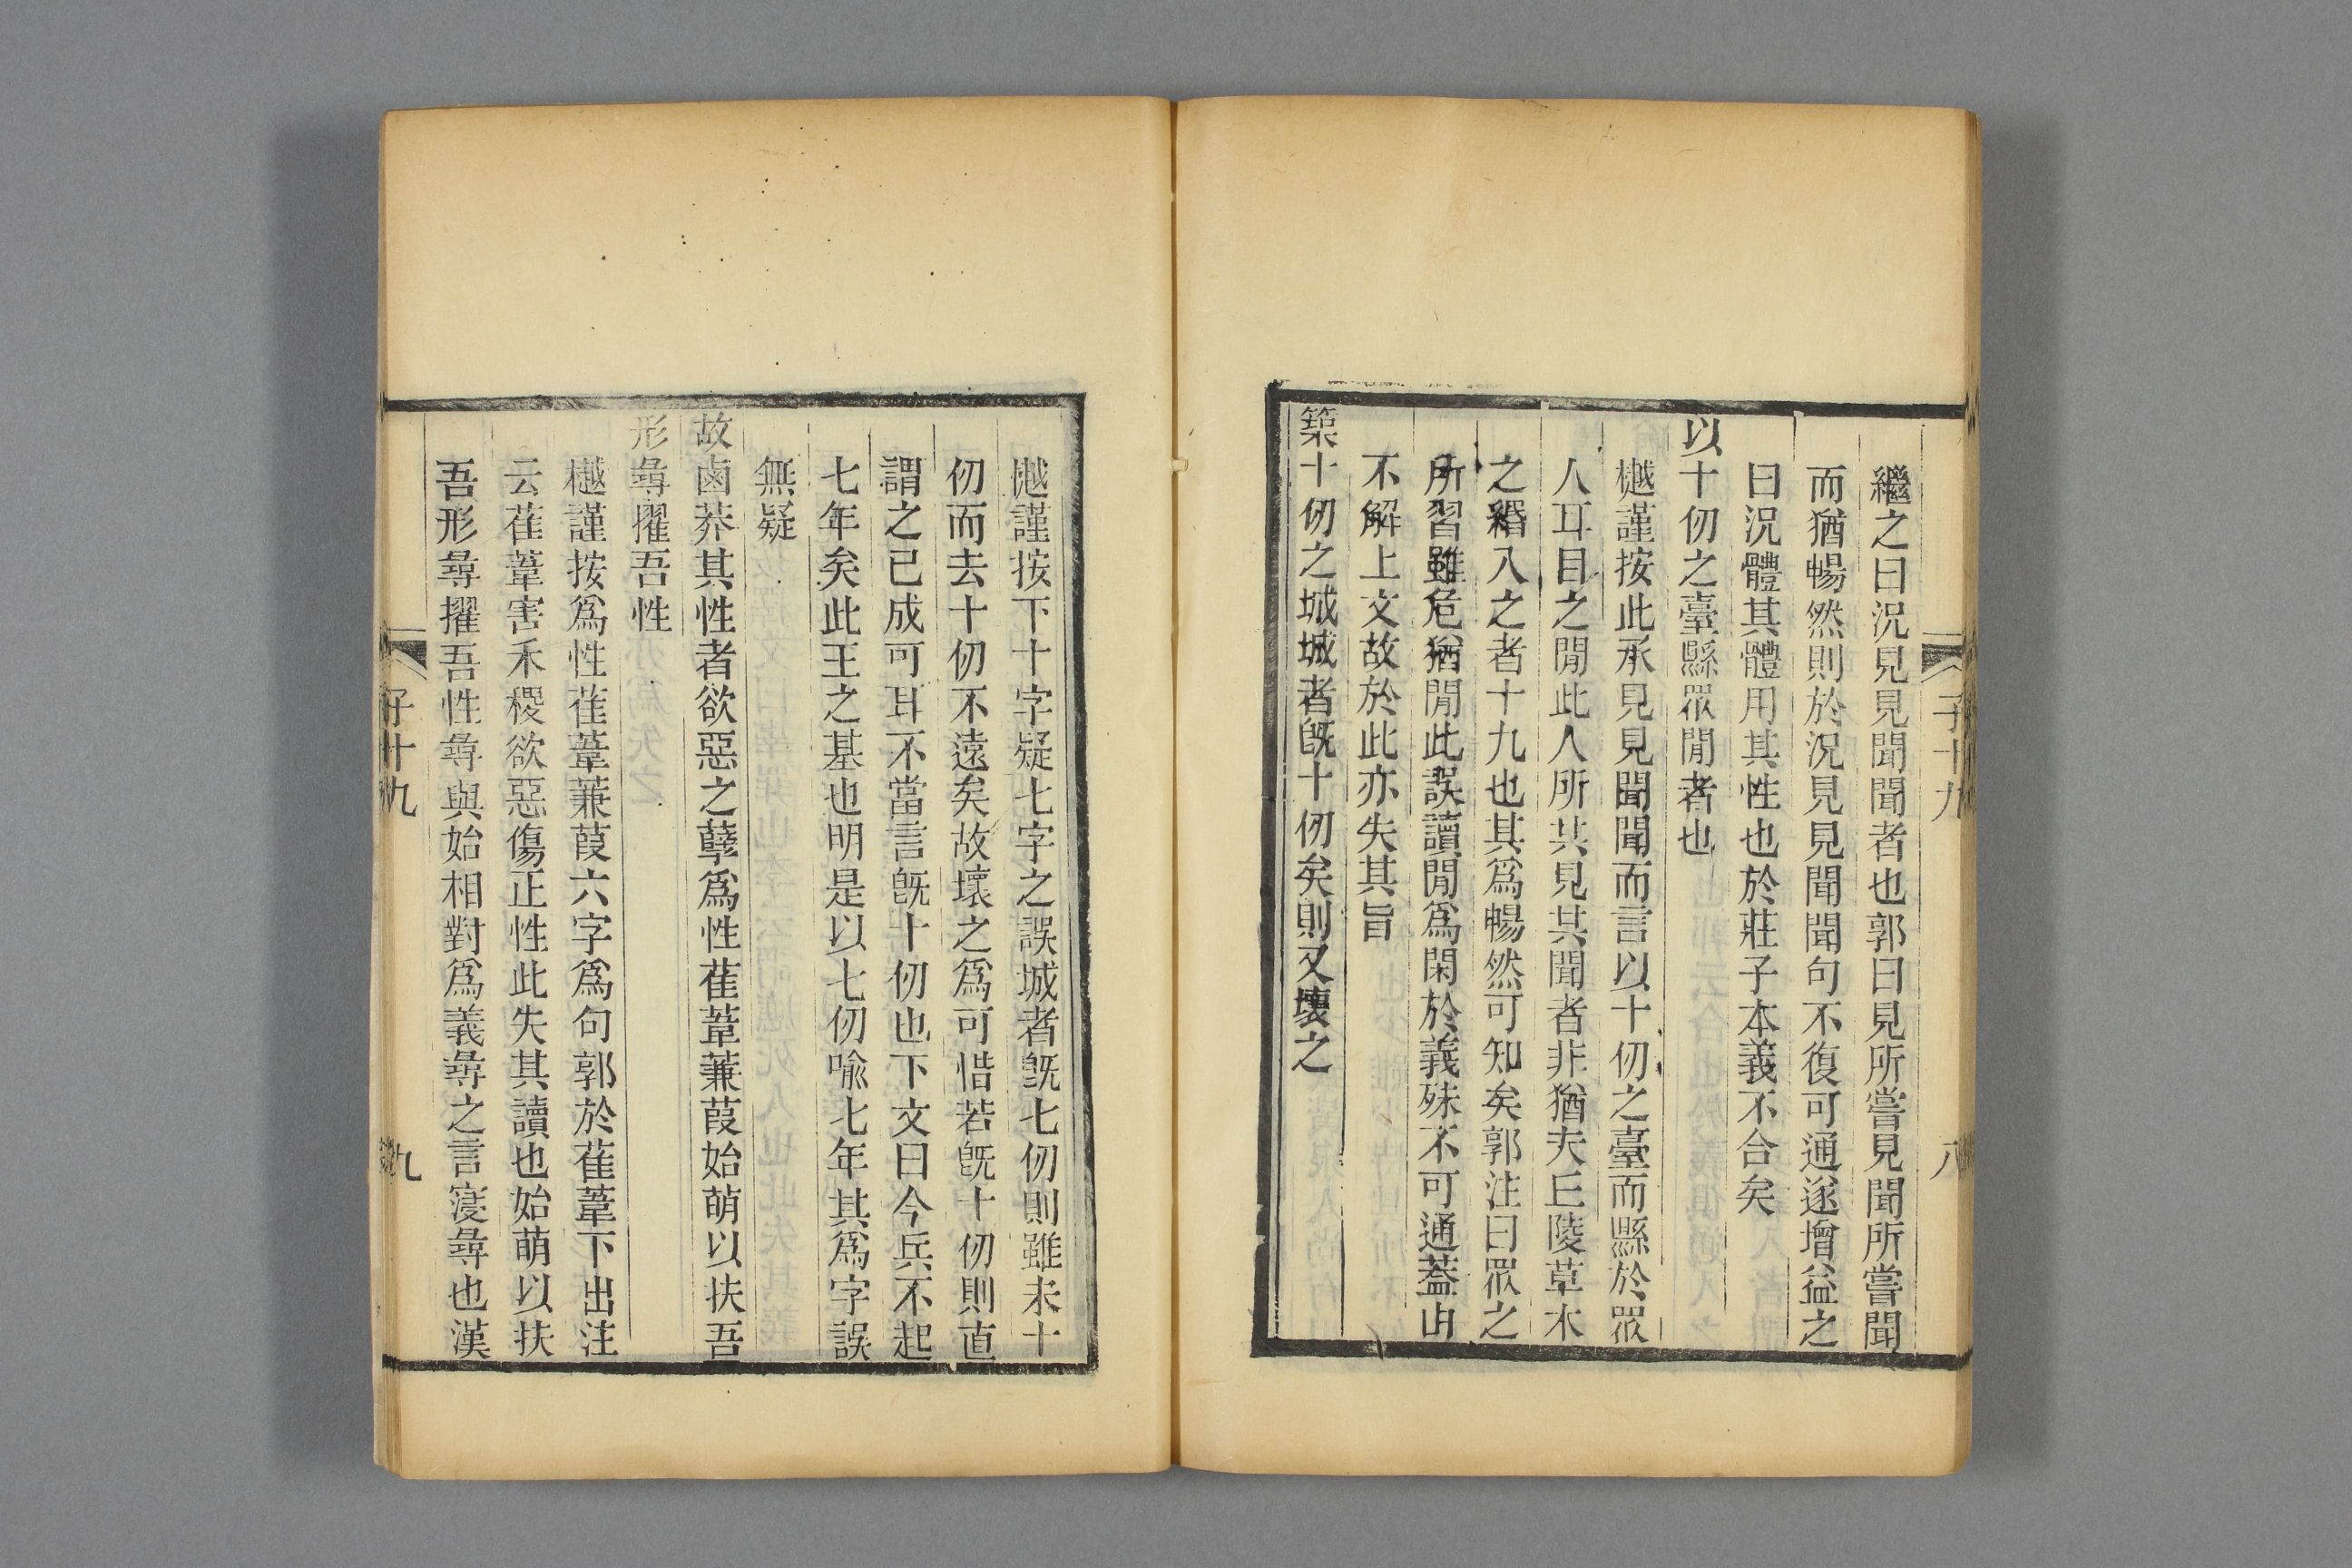 子十九
八
繼之曰況見見聞聞者也郭曰見所嘗見聞所嘗聞
而猶暢然則於況見見聞聞句不復可通遂增益之
曰況體其體用其性也於莊子本義不合矣
以十仞之臺縣眾閒者也
樾謹按此承見見聞聞而言以十仞之臺而縣於眾
人耳目之閒此人所共見其聞者非猶夫丘陵草木
之緡入之者十九也其爲暢然可知矣郭注曰眾之
所習雖危猶閒此誤讀閒爲閑於義殊不可通蓋由
不解上文故於此亦失其旨
築十仞之城城者旣十仞矣則又壞之
樾謹按下十字疑七字之誤城者旣七仞則雖未十
仞而去十仞不遠矣故壞之爲可惜若旣十仞則直
謂之已成可耳不當言旣十仞也下文曰今兵不起
七年矣此王之基也明是以七仞喻七年其爲字誤
無疑
故鹵莽其性者欲惡之孽爲性萑葦蒹葭始萌以扶吾
形尋擢吾性
樾謹按爲性萑葦蒹葭六字爲句郭於萑葦下出注
云萑葦害禾稷欲惡傷正性此失其讀也始萌以扶
吾形尋擢吾性尋與始相對爲義尋之言寖尋也漢
子十九
九